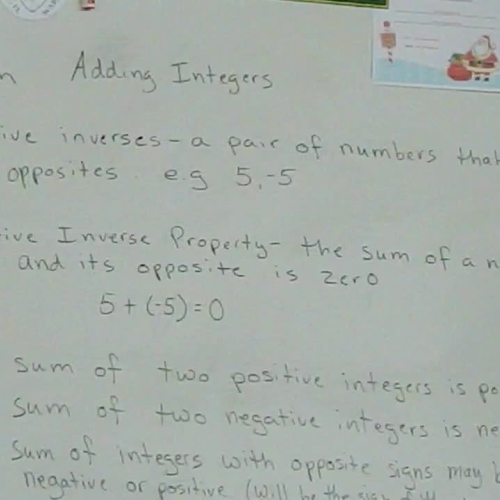 Adding Integers
inverses - a pair of numbers
opposites. e.g 5, -5
Inverse Property - the sum of a
and its opposite is zero
5 + (-5) = 0
sum of two positive integers is
sum of two negative integers is
Sum of integers with opposite signs may
negative or positive (will be the sign of